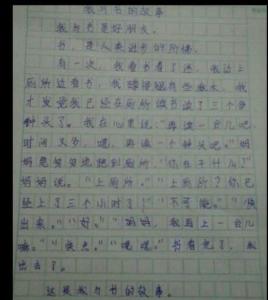 我与书的故事
我与书是好朋友。
书,是人类进步的阶梯。
有一次,我看书看了迷,我边上
厕所边看书,我 有些 ,我
才发觉我已经在厕所读书读了三个多
钟头了。我在心里说:"再读一会儿吧
时间还多,嗯,再读一个钟头吧。"可,妈
妈急匆匆地跑到厕所,"你在干什么?"
妈妈说。"上厕所。""上厕所?你已
经上了三个小时了!""不可能。""快
出来。""好。""妈妈,我再上一会儿
嘛。""快点。""嗯嗯。"书看完了,我
出去了。
这是我与书的故事。